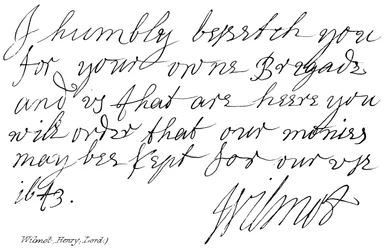 I humbly beseetch you
for your owne Bregade
and vs that are heere you
will order that our monies
may bee kept for our vse
1643.
Wilmot
Wilmot, Henry, Lord.)